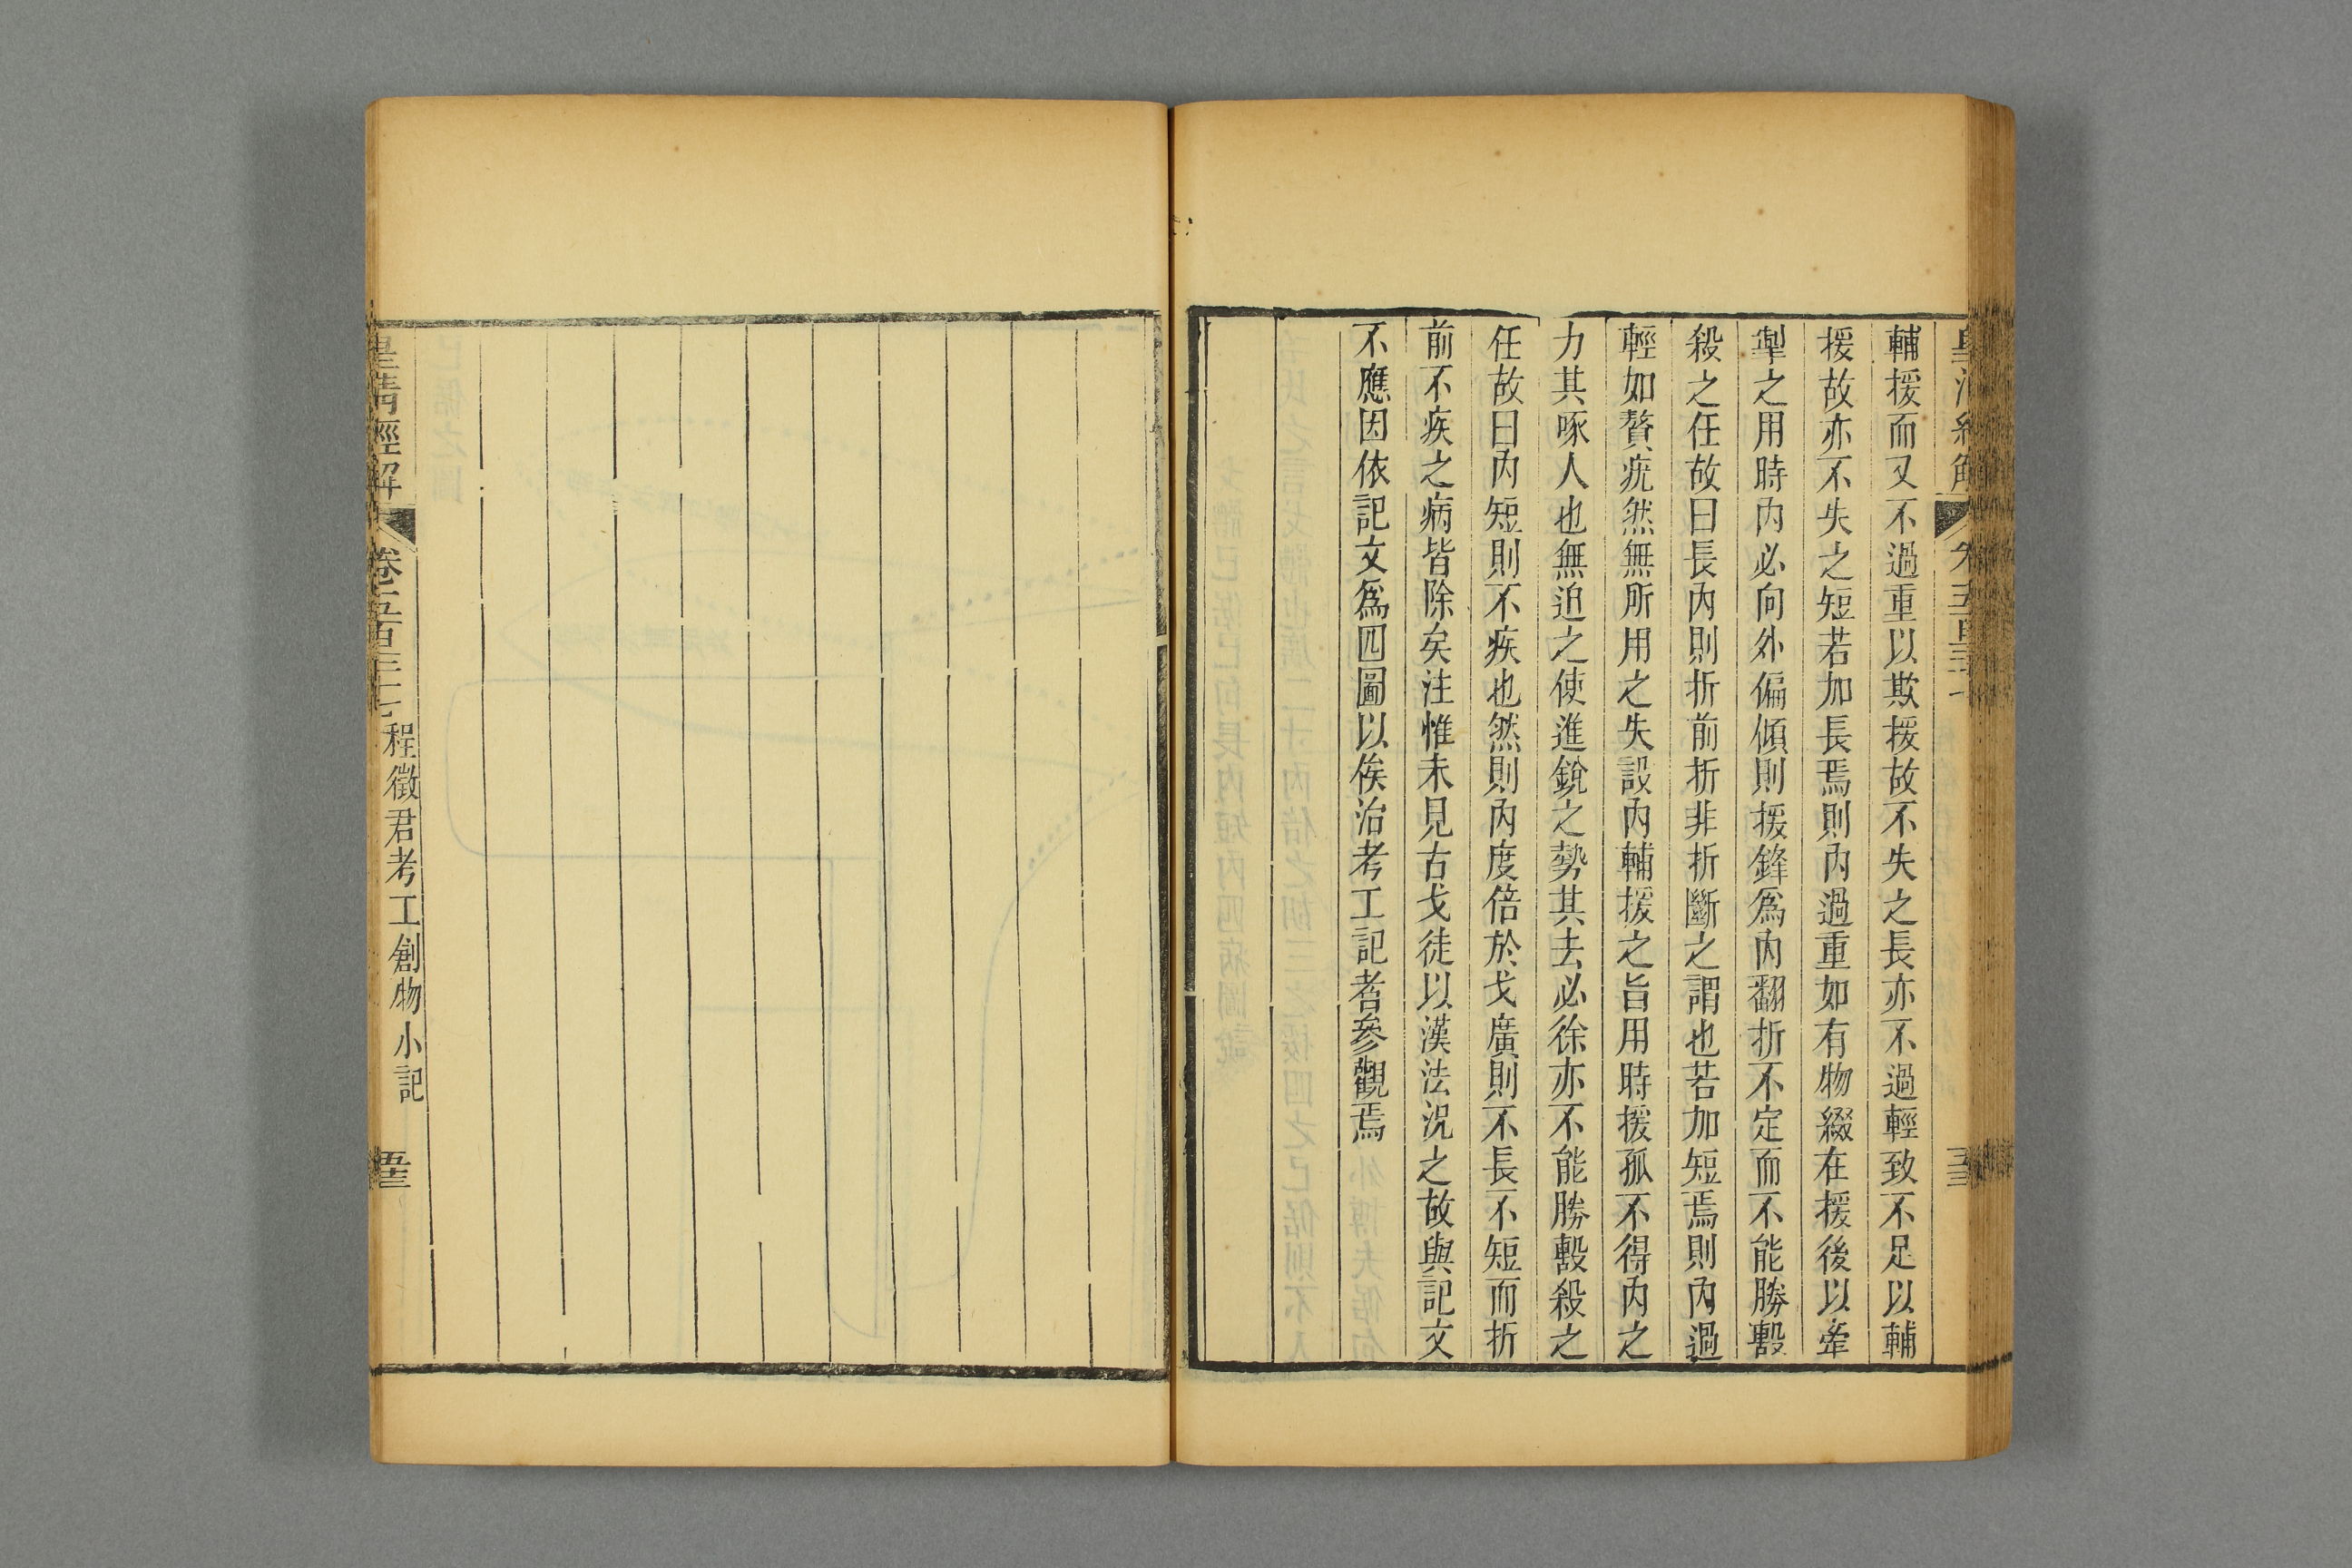 輔援而又不過重以欺援故不失之長亦不過輕致不足以輔
援故亦不失之短若加長焉則內過重如有物綴在援後以牽
掣之用時內必向外偏傾則援鋒爲內翻折不定而不能勝㲉
殺之任故曰長內則折前折非折斷之謂也若加短焉則內過
輕如贅疣然無所用之失設內輔援之旨用時援孤不得內之
力其啄人也無迫之使進銳之勢其去必徐亦不能勝㲉殺之
任故曰內短則不疾也然則內度倍於戈廣則不長不短而折
前不疾之病皆除矣注惟未見古戈徒以漢法況之故與記文
不應因依記文爲四圖以俟治考工記者參觀焉
皇清經解
卷五百三十七
程徵君考工創物小記